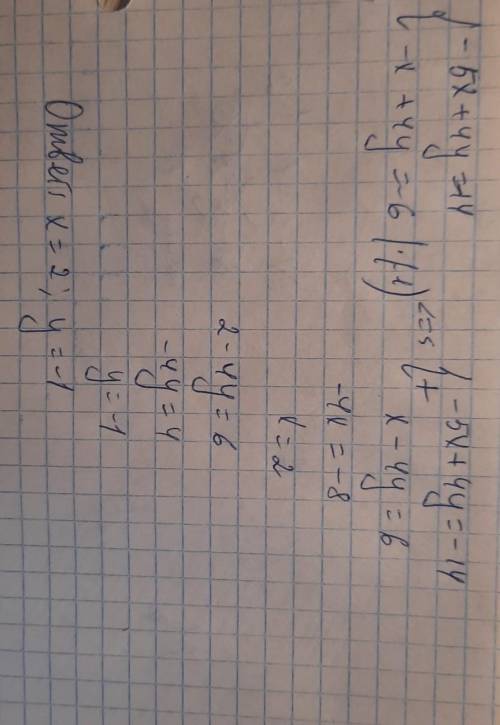 { -5x + 4y = -14
{ -x + 4y = 6 | · (-1) <=> + { -5x + 4y = -14
x - 4y = 6
-4x = -8
x = 2
2 - 4y = 6
-4y = 4
y = -1
Ответ: x = 2; y = -1